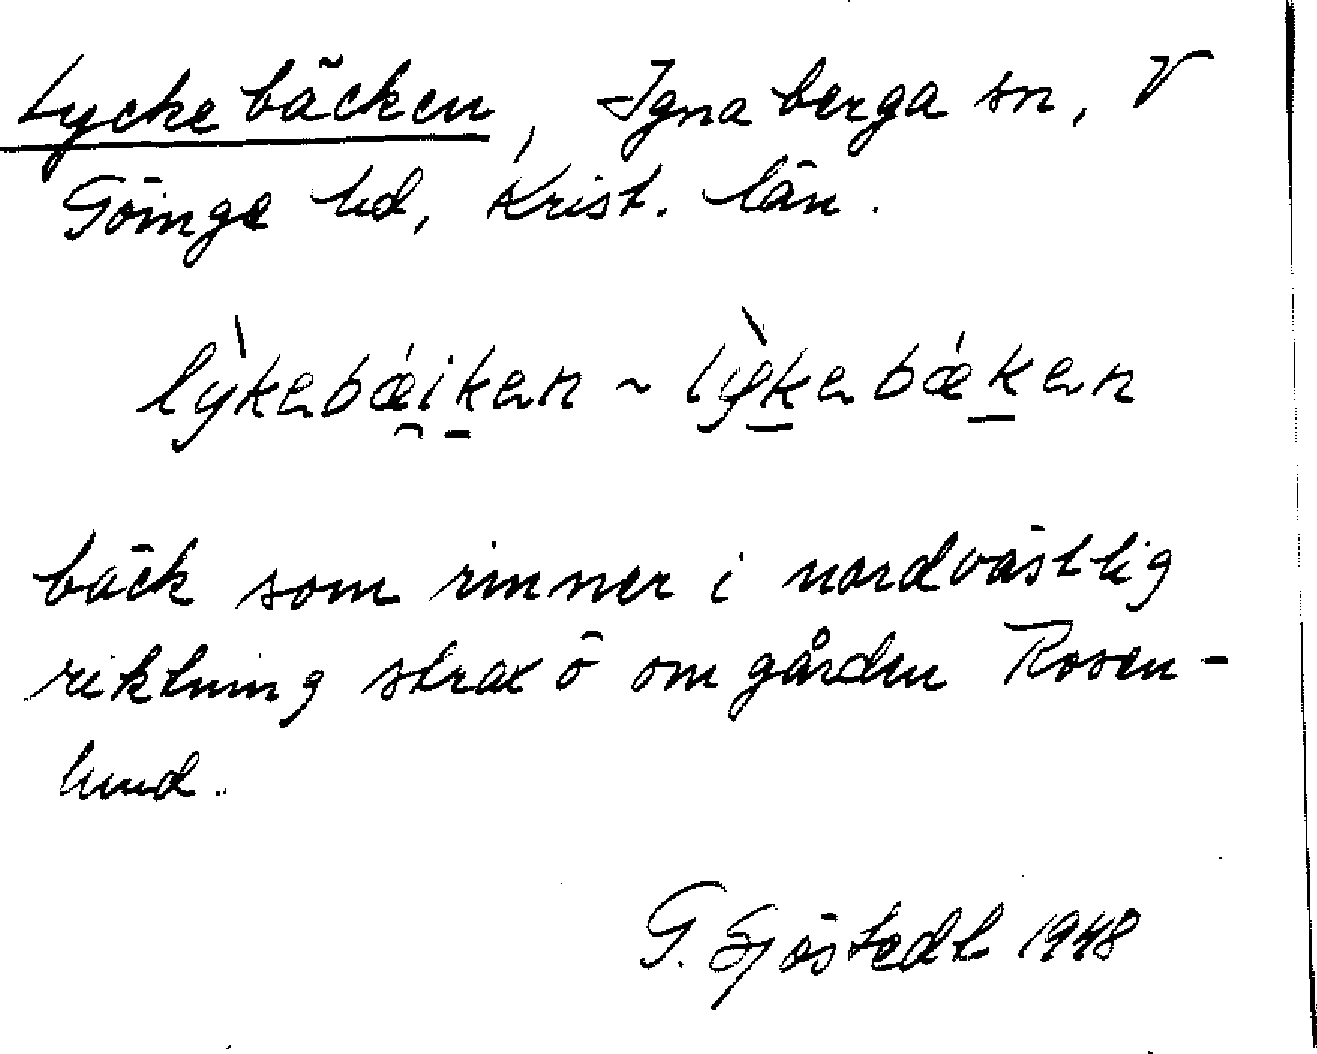 Lyckebäcken, Ignaberga sn, V
Göinge hd, Krist. län.
lỳkebǽi̯ḵen ~ lỳḵebǽḵen
bäck som rinner i nordvästlig
riktning strax ö om gården Rosen-
lund.
G. Sjöstedt 1948